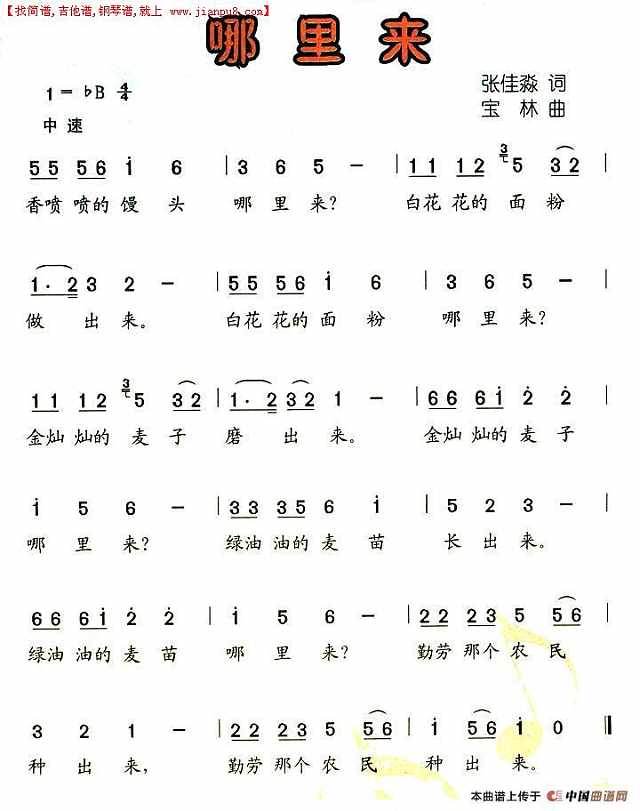 【找简谱,吉他谱,钢琴谱,就上 www.jianpu8.com】
哪里来
1=♭B 4/4
张佳淼 词
宝林 曲
中速
5 5 5 6 i 6 | 3 6 5 − | 1 1 1 2 3 5 3 2 |
香喷喷的馒头 哪里来? 白花花的面粉
1· 2 3 2 − | 5 5 5 6 i 6 | 3 6 5 − |
做出来。 白花花的面粉 哪里来?
1 1 1 2 3 5 3 2 | 1· 2 3 2 1 − | 6 6 6 i 2 2 |
金灿灿的麦子 磨出来。 金灿灿的麦子
i 5 6 − | 3 3 3 5 6 i | 5 2 3 − |
哪里来? 绿油油的麦苗 长出来。
6 6 6 i 2 2 | i 5 6 − | 2 2 2 3 5 5 6 |
绿油油的麦苗 哪里来? 勤劳那个农民
3 2 1 − | 2 2 2 3 5 5 6 | i 5 6 i 0 ‖
种出来, 勤劳那个农民 种出来。
本曲谱上传于 中国曲谱网